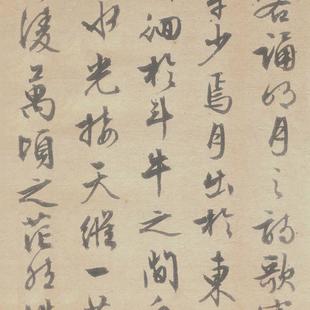 誦明月之詩歌
少焉月出於東
徊於斗牛之間
水光接天縱一
凌萬頃之茫然